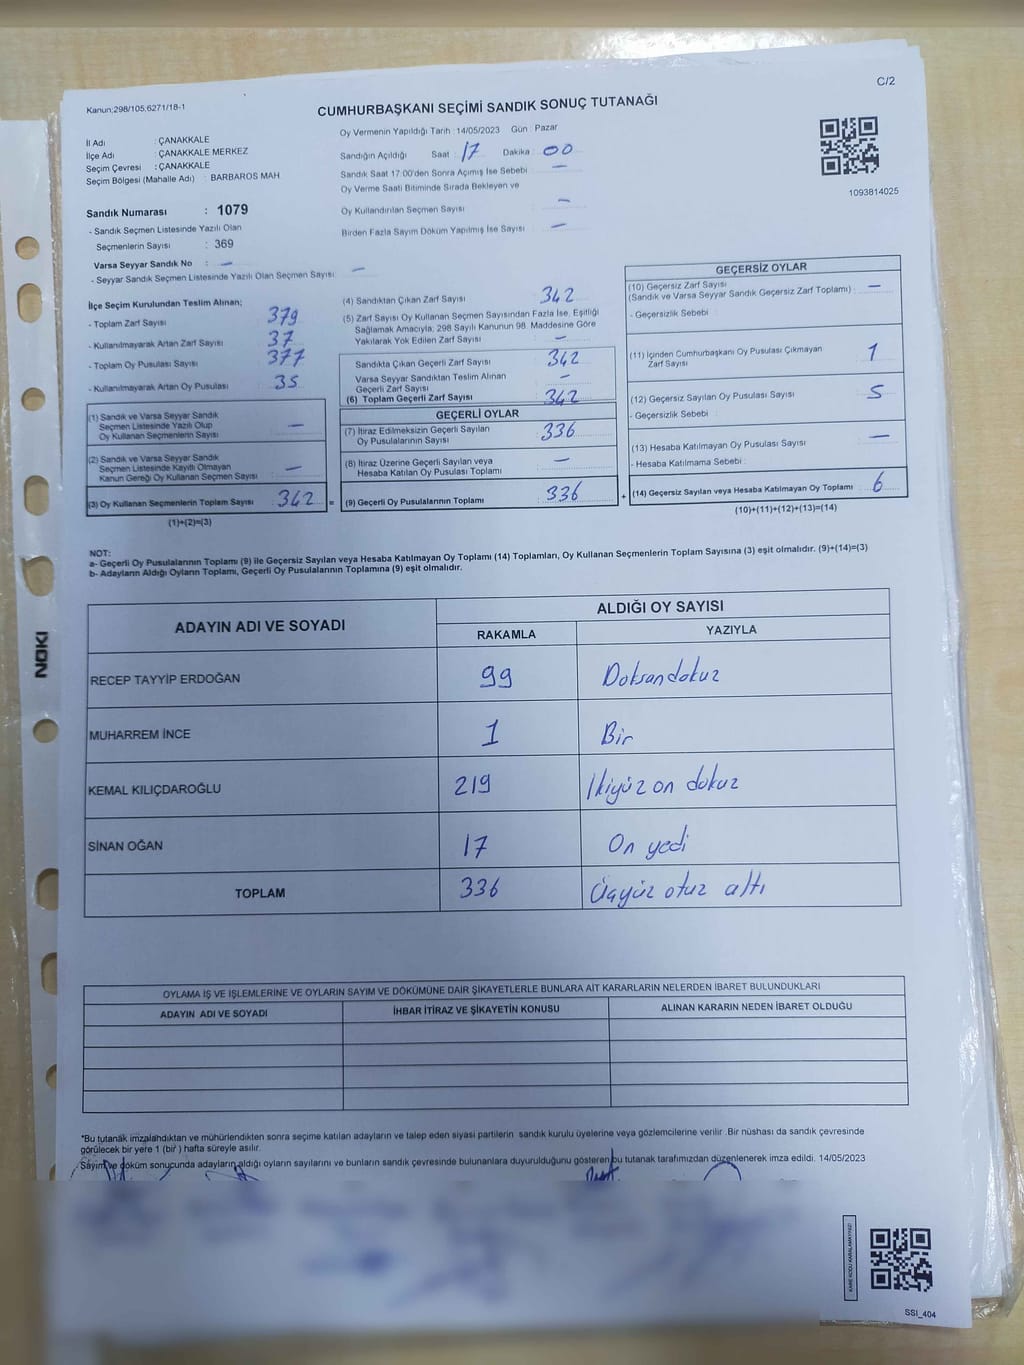 C/2
Kanun;298/105,6271/18-1
CUMHURBAŞKANI SEÇİMİ SANDIK SONUÇ TUTANAĞI
İl Adı : ÇANAKKALE
İlçe Adı : ÇANAKKALE MERKEZ
Seçim Çevresi : ÇANAKKALE
Seçim Bölgesi (Mahalle Adı) : BARBAROS MAH
Sandık Numarası : 1079
- Sandık Seçmen Listesinde Yazılı Olan
Seçmenlerin Sayısı : 369
Varsa Seyyar Sandık No : –
- Seyyar Sandık Seçmen Listesinde Yazılı Olan Seçmen Sayısı: –
Oy Vermenin Yapıldığı Tarih :14/05/2023 Gün : Pazar
Sandığın Açıldığı Saat : 17 Dakika : 00
Sandık Saat 17:00'den Sonra Açımış İse Sebebi : –
Oy Verme Saati Bitiminde Sırada Bekleyen ve
Oy Kullandırılan Seçmen Sayısı : –
Birden Fazla Sayım Döküm Yapılmış İse Sayısı : –
1093814025
İlçe Seçim Kurulundan Teslim Alınan;
- Toplam Zarf Sayısı : 379
- Kullanılmayarak Artan Zarf Sayısı : 37
- Toplam Oy Pusulası Sayısı : 377
- Kullanılmayarak Artan Oy Pusulası : 35
(1) Sandık ve Varsa Seyyar Sandık
Seçmen Listesinde Yazılı Olup
Oy Kullanan Seçmenlerin Sayısı : –
(2) Sandık ve Varsa Seyyar Sandık
Seçmen Listesinde Kayıtlı Olmayan
Kanun Gereği Oy Kullanan Seçmen Sayısı : –
(3) Oy Kullanan Seçmenlerin Toplam Sayısı : 342
(1)+(2)=(3)
=
(4) Sandıktan Çıkan Zarf Sayısı : 342
(5) Zarf Sayısı Oy Kullanan Seçmen Sayısından Fazla İse, Eşitliği
Sağlamak Amacıyla; 298 Sayılı Kanunun 98. Maddesine Göre
Yakılarak Yok Edilen Zarf Sayısı : –
Sandıkta Çıkan Geçerli Zarf Sayısı : 342
Varsa Seyyar Sandıktan Teslim Alınan
Geçerli Zarf Sayısı : –
(6) Toplam Geçerli Zarf Sayısı : 342
GEÇERLİ OYLAR
(7) İtiraz Edilmeksizin Geçerli Sayılan
Oy Pusulalarının Sayısı : 336
(8) İtiraz Üzerine Geçerli Sayılan veya
Hesaba Katılan Oy Pusulası Toplamı : –
(9) Geçerli Oy Pusulalarının Toplamı : 336
+
GEÇERSİZ OYLAR
(10) Geçersiz Zarf Sayısı
(Sandık ve Varsa Seyyar Sandık Geçersiz Zarf Toplamı) : –
- Geçersizlik Sebebi :
(11) İçinden Cumhurbaşkanı Oy Pusulası Çıkmayan
Zarf Sayısı : 1
(12) Geçersiz Sayılan Oy Pusulası Sayısı : 5
- Geçersizlik Sebebi :
(13) Hesaba Katılmayan Oy Pusulası Sayısı : –
- Hesaba Katılmama Sebebi :
(14) Geçersiz Sayılan veya Hesaba Katılmayan Oy Toplamı : 6
(10)+(11)+(12)+(13)=(14)
NOT:
a- Geçerli Oy Pusulalarının Toplamı (9) ile Geçersiz Sayılan veya Hesaba Katılmayan Oy Toplamı (14) Toplamları, Oy Kullanan Seçmenlerin Toplam Sayısına (3) eşit olmalıdır. (9)+(14)=(3)
b- Adayların Aldığı Oyların Toplamı, Geçerli Oy Pusulalarının Toplamına (9) eşit olmalıdır.
ADAYIN ADI VE SOYADI ALDIĞI OY SAYISI
RAKAMLA YAZIYLA
RECEP TAYYİP ERDOĞAN 99 Doksandokuz
MUHARREM İNCE 1 Bir
KEMAL KILIÇDAROĞLU 219 İkiyüz on dokuz
SİNAN OĞAN 17 On yedi
TOPLAM 336 Üçyüz otuz altı
OYLAMA İŞ VE İŞLEMLERİNE VE OYLARIN SAYIM VE DÖKÜMÜNE DAİR ŞİKAYETLERLE BUNLARA AİT KARARLARIN NELERDEN İBARET BULUNDUKLARI
ADAYIN ADI VE SOYADI İHBAR İTİRAZ VE ŞİKAYETİN KONUSU ALINAN KARARIN NEDEN İBARET OLDUĞU
*Bu tutanak imzalandıktan ve mühürlendikten sonra seçime katılan adayların ve talep eden siyasi partilerin sandık kurulu üyelerine veya gözlemcilerine verilir .Bir nüshası da sandık çevresinde
görülecek bir yere 1 (bir ) hafta süreyle asılır.
Sayım ve döküm sonucunda adayların aldığı oyların sayılarını ve bunların sandık çevresinde bulunanlara duyurulduğunu gösteren bu tutanak tarafımızdan düzenlenerek imza edildi. 14/05/2023
KARE KODU KARALAMAYINIZ!
SSI_404
NOKI